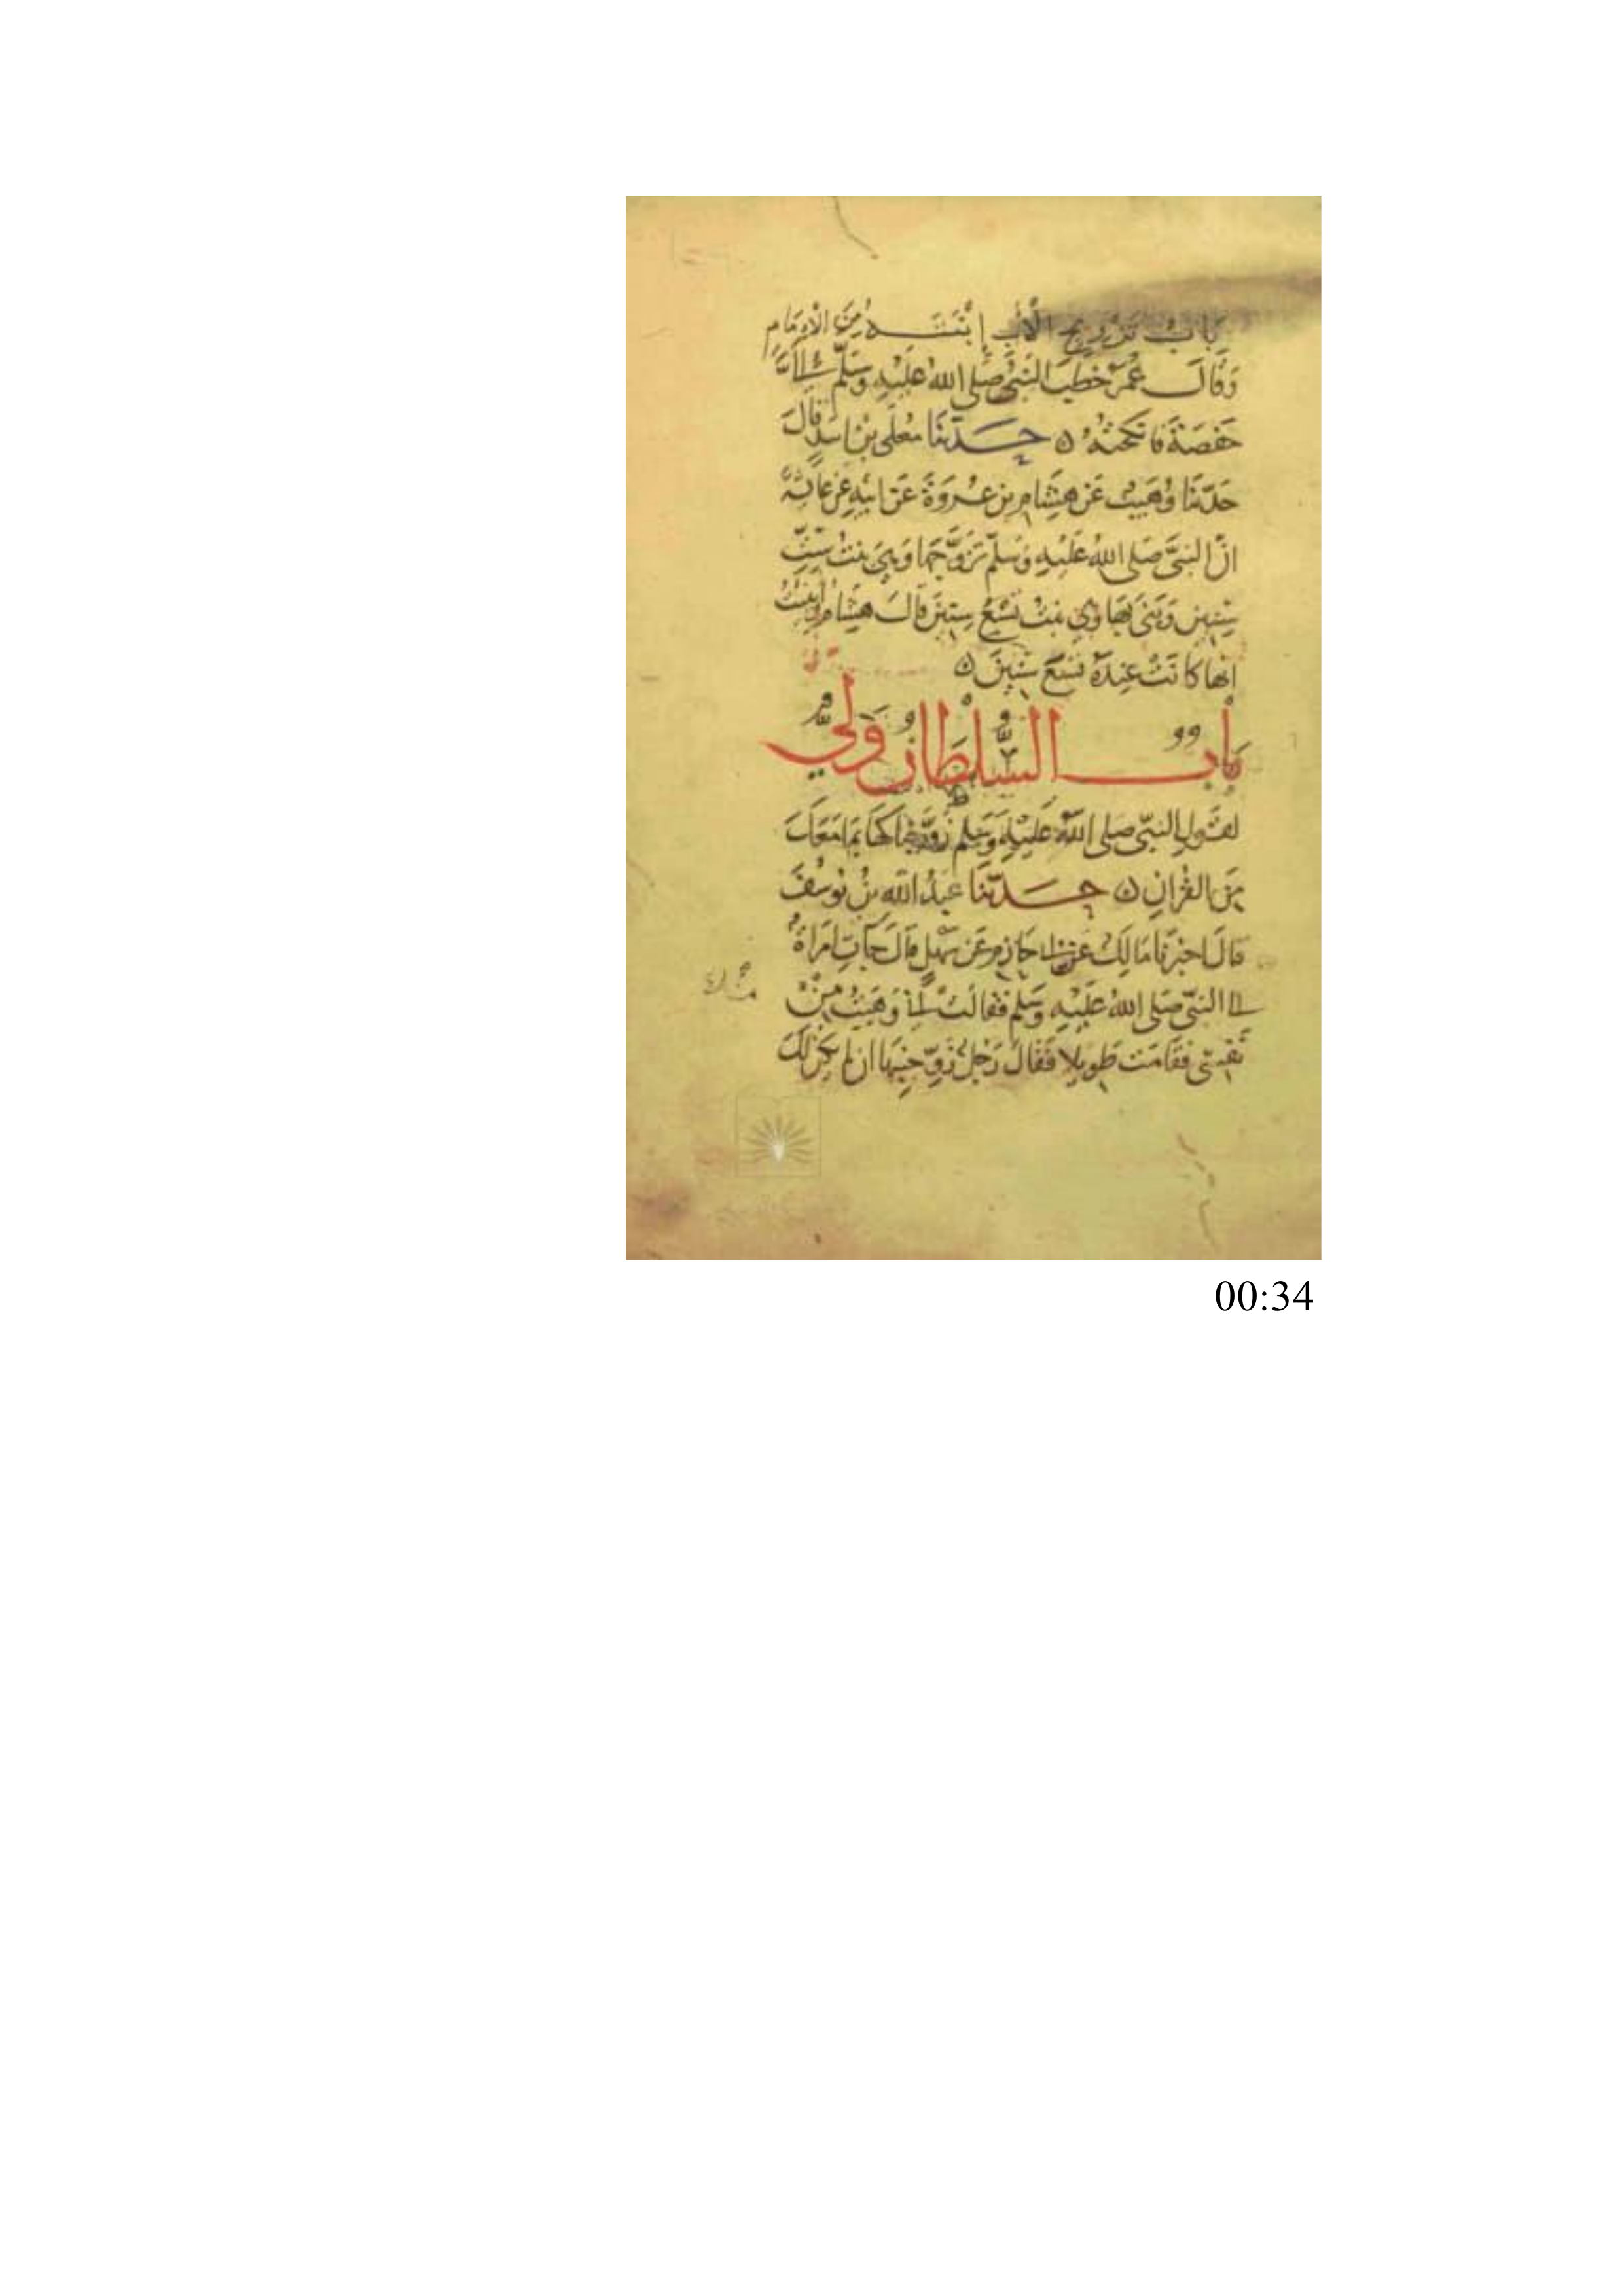 بَابُ تَزْوِيجِ الْأَبِ إِبْنَتَهُ مِنَ الْإِمَامِ
وَقَالَ عُمَرُ خَطَبَ النَّبِيُّ صَلَّى اللهُ عَلَيْهِ وَسَلَّمَ إِلَيَّ
حَفْصَةَ فَانْكَحْتُهُ ۞ حَدَّثَنَا مُعَلَّى بْنُ اسَدٍ قَالَ
حَدَّثَنَا وُهَيْبٌ عَنْ هِشَامِ بْنِ عُرْوَةَ عَنْ ابِيهِ عَنْ عَائِشَةَ
انَّ النَّبِيَّ صَلَّى اللهُ عَلَيْهِ وَسَلَّمَ تَزَوَّجَهَا وَهِيَ بِنْتُ سِتِّ
سِنِينَ وَبَنَى بِهَا وَهِيَ بِنْتُ تِسْعِ سِنِينَ قَالَ هِشَامٌ وَأُنْبِئْتُ
انَّهَا كَانَتْ عِنْدَهُ تِسْعَ سِنِينَ ۞
بَابٌ السُّلْطَانُ وَلِيٌّ
لِقَوْلِ النَّبِيِّ صَلَّى اللهُ عَلَيْهِ وَسَلَّمَ زَوَّجْنَاكَهَا بِمَا مَعَكَ
مِنَ الْقُرْانِ ۞ حَدَّثَنَا عَبْدُ اللهِ بْنُ يُوسُفَ
قَالَ اخْبَرَنَا مَالِكٌ عَنْ ابِي حَازِمٍ عَنْ سَهْلٍ قَالَ جَاءَتِ امْرَاةٌ
الى النَّبِيِّ صَلَّى اللهُ عَلَيْهِ وَسَلَّمَ فَقَالَتْ إِنِّي وَهَبْتُ مِنْ
نَفْسِي فَقَامَتْ طَوِيلا فَقَالَ رَجُلٌ زَوِّجْنِيهَا ان لم تكن لك
00:34